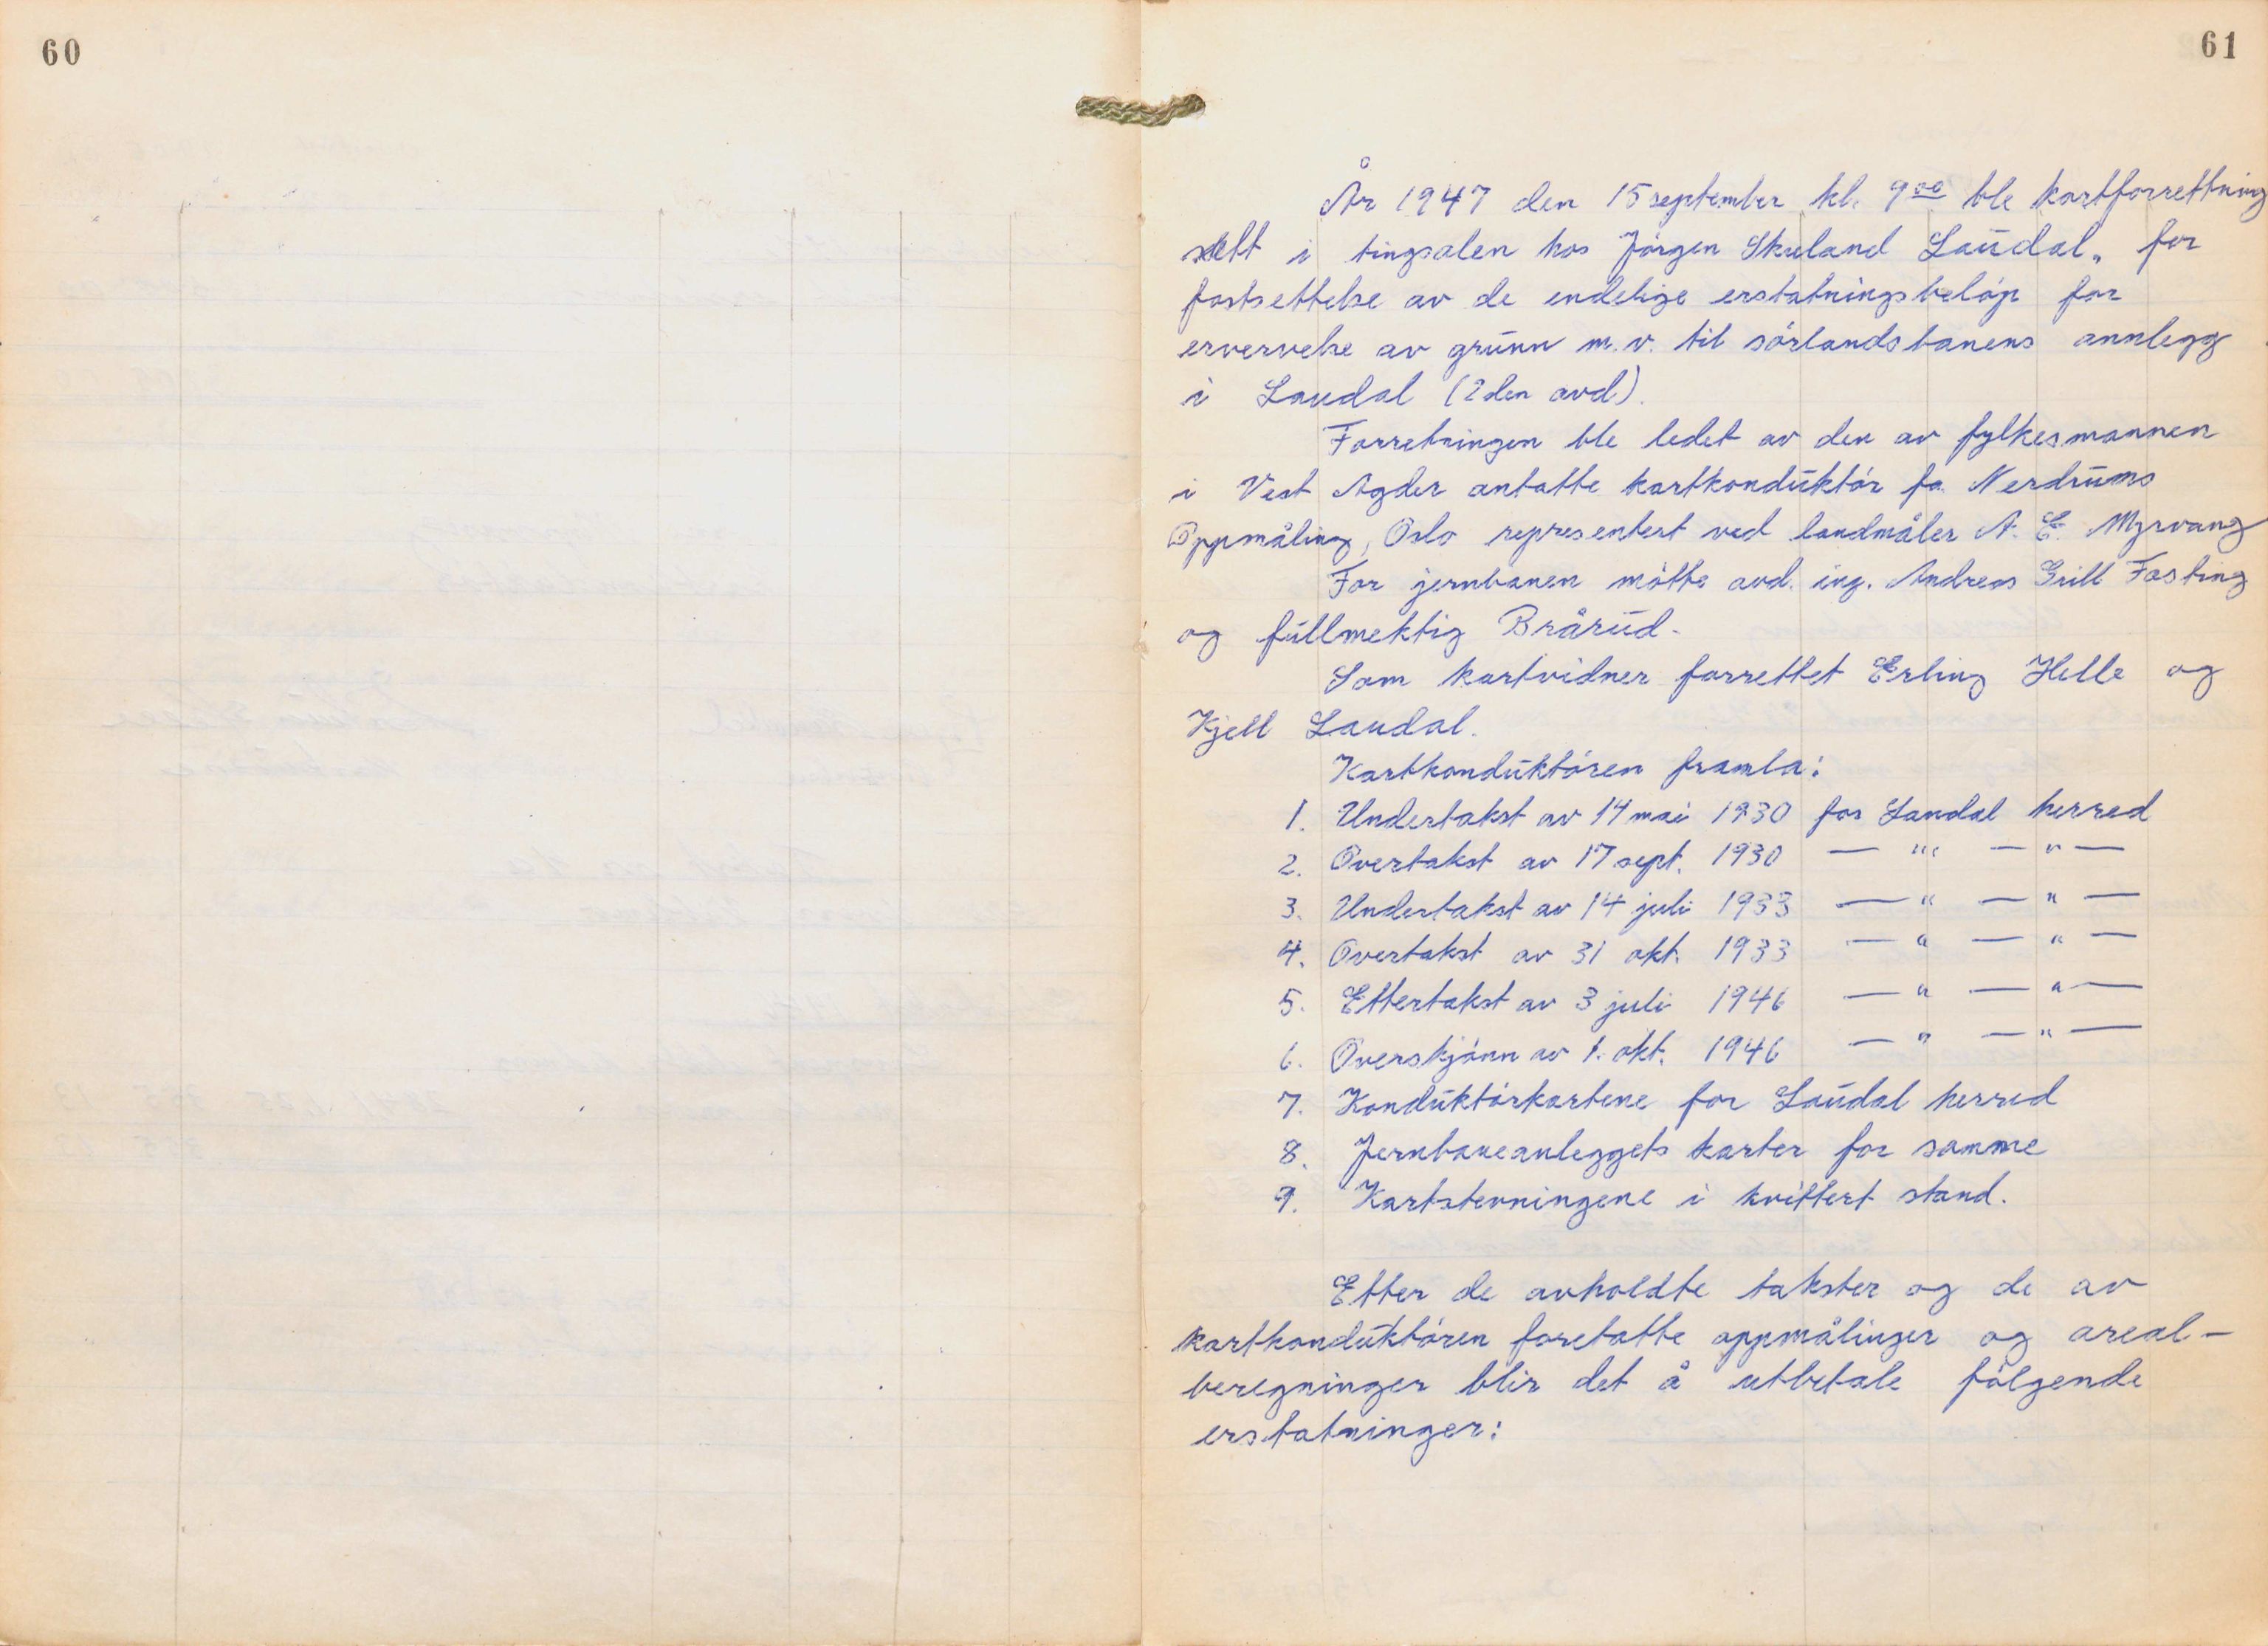 60
61
År 1947 den 15 september kl. 9 00 ble kartforrettning
sett i tingsalen hos Jørgen Skuland Laudal, for
fastsettelse av de endelige erstatningsbeløp for
ervervelse av grunn m.v. til sørlandsbanens annlegg
i Laudal (2den avd).
Forretningen ble ledet av den av fylkesmannen
i Vest Agder antatte kartkonduktør fa. Nerdrums
Oppmåling, Oslo representert ved landmåler A. E. Myrvang
For jernbanen møtte avd. ing. Andreas Grill Fasting
og fullmektig Brårud.
Som kartvidner forrettet Erling Helle og
Kjell Laudal.
Kartkonduktøren framla:
1. Undertakst av 14 mai 1930 for Laudal herred
2. Overtakst av 17 sept. 1930 — " — " —
3. Undertakst av 14 juli 1933 — " — " —
4. Overtakst av 31 okt. 1933 — " — " —
5. Ettertakst av 3 juli 1946 — " — " —
6. Overskjønn av 1. okt. 1946 — " — " —
7. Konduktørkartene for Laudal herred
8. Jernbaneanleggets karter for samme
9. Kartstevningene i kvittert stand.
Etter de avholdte takster og de av
kartkonduktøren foretatte oppmålinger og areal-
beregninger blir det å utbetale følgende
erstatninger: